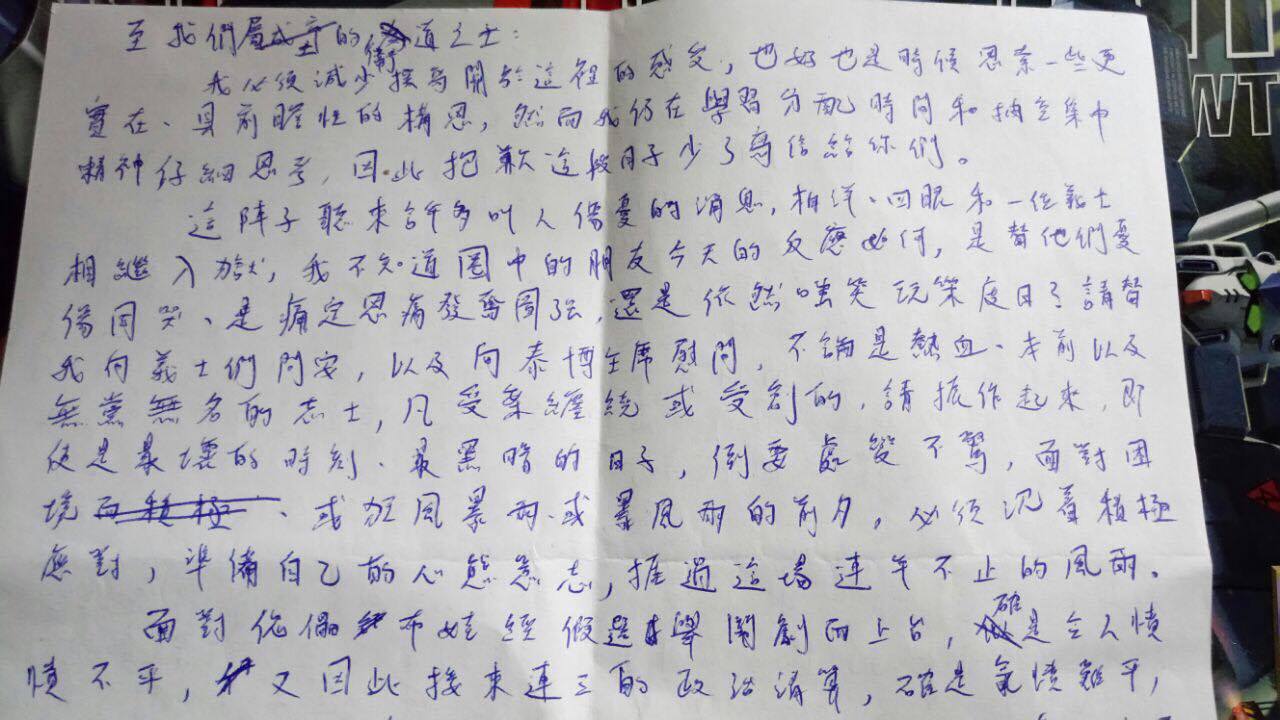 至我們屬城寨的衛道之士：
我必須減少撰寫關於這裡的感受，也好也是時候思索一些更
實在、具前瞻性的構思，然而我仍在學習分配時間和抽空集中
精神仔細思考，因此抱歉這段日子少了寫信給你們。
這陣子聽來許多叫人傷憂的消息，柏洋、四眼和一位義士
相繼入獄，我不知道圈中的朋友今天的反應如何，是替他們憂
傷同哭、是痛定思痛發奮圖強，還是依然嗤笑玩樂度日？請替
我向義士們問安，以及向泰博主席慰問，不論是熱血、本前以及
無黨無名的志士，凡受案纏繞或受創的，請振作起來，即
使是最壞的時刻、最黑暗的日子，倒要處變不驚，面對困
境而積極、或狂風暴雨、或暴風雨的前夕，必須沉着積極
應對，準備自己的心態意志，捱過這場連年不止的風雨。
面對傀儡布娃經假選舉鬧劇而上台，確是令人憤
憤不平，又因此接來連三的政治清算，確是氣憤難平，
WT